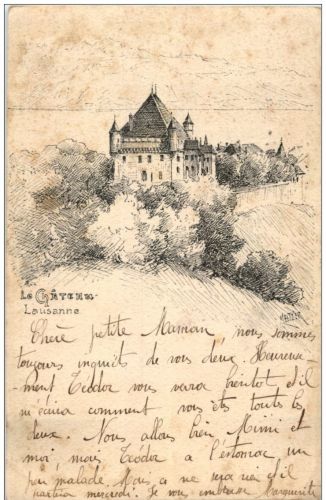 Le Château
Lausanne
Chère petite Maman, nous sommes
toujours inquiets de vous deux. Heureuse-
ment Teodor vous verra bientôt et il
m'écrira comment vous êtes toutes les
deux. Nous allons bien Mimi et
moi mais Teodor a l'estomac un
peu malade. Mais ca ne sera rien et il
partira mercredi. Je vous embrasse Marguerite